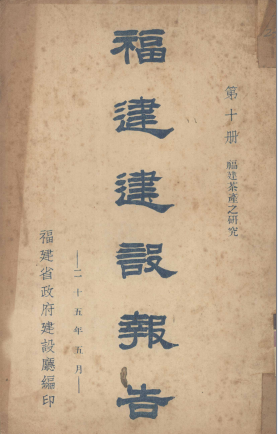 第十册 福建茶產之研究
福建建設報告
—二十五年五月—
福建省政府建設廳編印